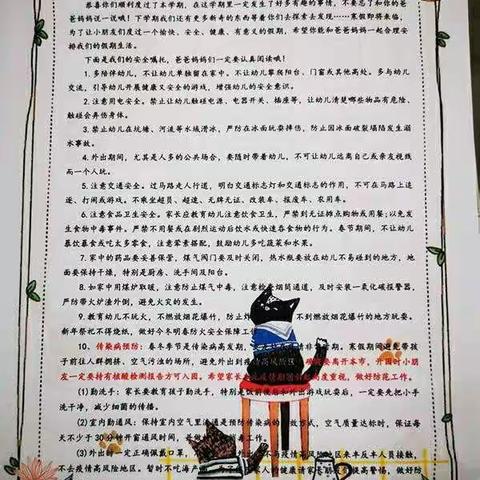 恭喜你们顺利度过了本学期，在这里一定发生了好多有趣的事情，不要忘了和你的爸
爸妈妈说一说哦！下学期我们还有更多新奇的东西等着你们去探索去发现……寒假即将来临，
为了让小朋友们度过一个愉快、安全、健康、有意义的假期，希望你能和爸爸妈妈一起合理安
排我们的假期生活。
下面是我们的安全嘱托，爸爸妈妈们一定要认真阅读哦！
1. 多陪伴幼儿，不让幼儿单独留在家中。不让幼儿攀爬阳台、门窗或其他高处。多与幼儿
交流，引导幼儿开展健康又安全的游戏，增强幼儿的安全意识。
2. 注意用电安全。禁止让幼儿触碰电源、电器开关、插座等，让幼儿清楚哪些物品有危险，
触碰会弄伤身体。
3. 禁止幼儿在坑塘、河流等水域滑冰，严防在冰面玩耍摔伤，防止因冰面破裂塌陷发生
溺水事故。
4. 外出期间，尤其是人多的公共场合，要随时带着幼儿，不可让幼儿远离自己或亲友视线
而一个人玩。
5. 注意交通安全。过马路走人行道，明白交通标志灯和交通标志的作用，不可在马路上追
逐、打闹或游戏。不乘坐超员、超速、无牌无证、改装车、报废车、农用车。
6. 注意食品卫生安全。家长应教育幼儿注意饮食卫生，严禁到无证摊点购物或用餐；以免发
生食物中毒事件。严禁不用餐或在剧烈运动后饮水或快速吞食物的行为。春节期间，不让幼儿
暴饮暴食或吃太多零食，注意荤素搭配，鼓励幼儿多吃蔬菜和水果。
7. 家中的药品要妥善保管，煤气阀门要及时关闭，热水瓶要放在幼儿不易碰到的地方，地
面要保持干燥，特别是厨房、洗手间及阳台。
8. 如家中用煤炉取暖，注意防止煤气中毒，注意检查烟筒通道，及时安装一氧化碳报警器，
严防带火炉法外倒，避免火灾的发生。
9. 教育幼儿不玩火，不燃放烟花爆竹，防止炸 不到燃放烟花爆竹的地方玩耍。
新年祭祀不得烧纸，做好今冬明春防火安全保障工
10. 传染病预防：春冬季节是传染病高发期， 非常 寒假期间避免带孩
子前往人群拥挤、空气污浊的场所，避免外出到疫情高风险区， 要离开本市，开园时小朋
友一定要持有核酸检测报告方可入园。希望家长 疫情期 高度重视，做好防范工作。
(1)勤洗手：家长要教育孩子勤洗手，特别是饭前便后和外出游戏玩耍后，一定要先把小手
洗干净，减少细菌的传播。
(2)室内勤通风：保持室内空气 通是预防传染病的 方式，空气质量达标时，保证每
天不少于30分钟开窗通风时间， 工作。
(3)外出时一定正确佩戴口罩， 地区来丰反丰人员接触，
不去疫情高风险地区。暂时不吃海产 家人的健康请家长朋 提高警惕，做好防